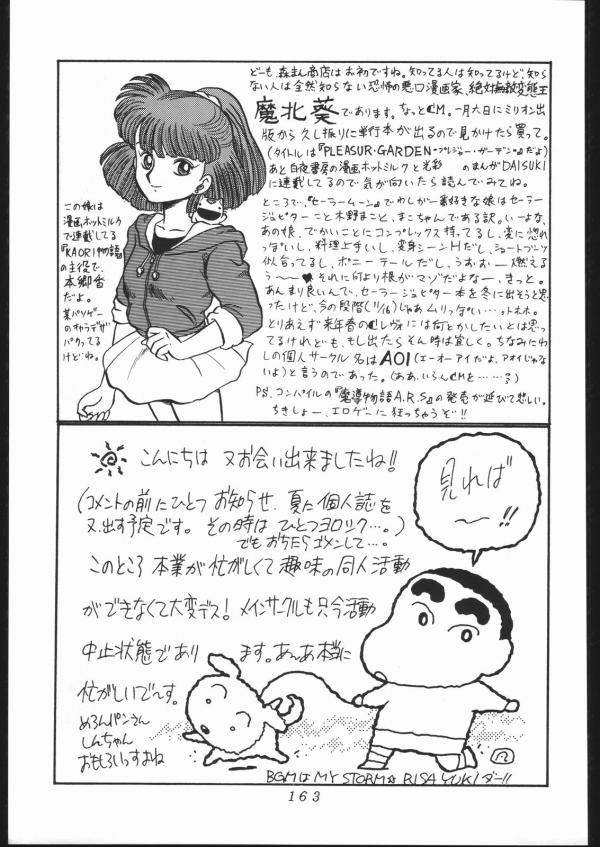 どーも、森まん商店はお初ですね。知ってる人は知ってるけど、知ら
ない人は全然知らない恐怖の悪口漫画家、絶対無敵変態王
魔北葵であります。なっとCM。一月六日にミリオン出
版から久し振りに単行本が出るので見かけたら買って。
(タイトルは『PLEASUR・GARDEN-プレジャー・ガーデン-』だよ)
あと白夜書房の漫画ホットミルクと光彩 のまんがDAISUKI
に連載してるので気が向いたら読んでみてね。
ところで、『セーラームーン』でわしが一番好きな娘はセーラー
ジュピターこと木野まこと、まこちゃんである訳。いーよな、
あの娘、でかいことにコンプレックス持ってるし、変に惚れ
っぽいし、料理上手いし、変身シーンHだし、ショートブーツ
似合ってるし、ポニーテールだし、うおぉー燃えるう
う〜〜♥それに何より根がマゾだよなー、きっと。
あんまり良いんで、セーラージュピター本を冬に出そうと思
ったけど、今の段階(11/16)じゃあムリっぽい…ットホホ。
とりあえず来年春のCレヴォには何とかしたいとは思っ
てるけれども、もし出たらそん時は宜しく。ちなみにわ
しの個人サークル名はAOI(エーオーアイだよ、アオイじゃな
いよ)と言うのであった。(ああ、いろんCMを……?)
PS.コンパイルの『魔導物語A.R.S』の発売が延びて悲しい。
ちきしょー、エロゲーに狂っちゃうぞ!!
この娘は
漫画ホットミルク
で連載してる
『KAORI物語』
の主役で、
本郷香
だよ。
某パソゲー
のキャラデザ
パクってる
けどね。
こんにちは 又お会い出来ましたね!!
(コメントの前にひとつお知らせ、夏に個人誌を
又出す予定です。その時はひとつヨロシク…。)
でもおちたらゴメンして…。
このところ本業が忙がしくて趣味の同人活動
ができなくて大変デス! メインサークルも只今活動
中止状態であり ます。あんあ本当に
忙がしいで〜す。
めろんパンさん
しんちゃん
おもろいっすよね
見れば
〜!!
BGMはMY STORM☆RISA YUKIダー!!
163